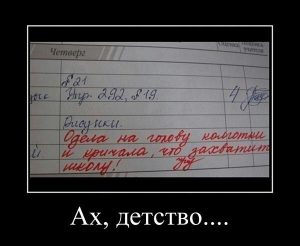 Четверг
Оценка
№21
Упр. 292, §19.
4
Рисунки.
Одела на голову колготки
и кричала, что захватит
школу!
Ах, детство....